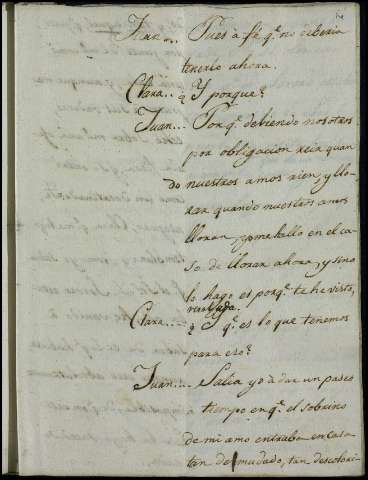 Juan... Pues à fé q.e no deberia
tenerlo ahora.
Clara... ¿ Y porque?
Juan... Porq.e debiendo nosotros
por obligacion reir quan
do nuestros amos rien, y llo-
rar quando nuestros amos
lloran, yo me hallo en el ca-
so de llorar ahora, y sino
lo hago es porq.e te he visto,
Clara.... ¿ Y q.e es lo que tenemos
para eso?
Juan.... Salia yo à dar un paseo
tiempo en q.e el sobrino
de mi amo entraba en casa
tan demudado, tan descolori-